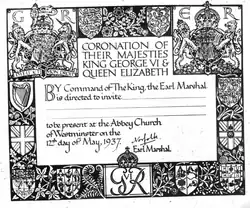 G R
E R
CORONATION OF
THEIR MAJESTIES
KING GEORGE VI &
QUEEN ELIZABETH
BY Command of The King, the Earl Marshal
is directed to invite
to be present at the Abbey Church
of Westminster on the
12th day of May, 1937.
Norfolk.
Earl Marshal.
GR
VI